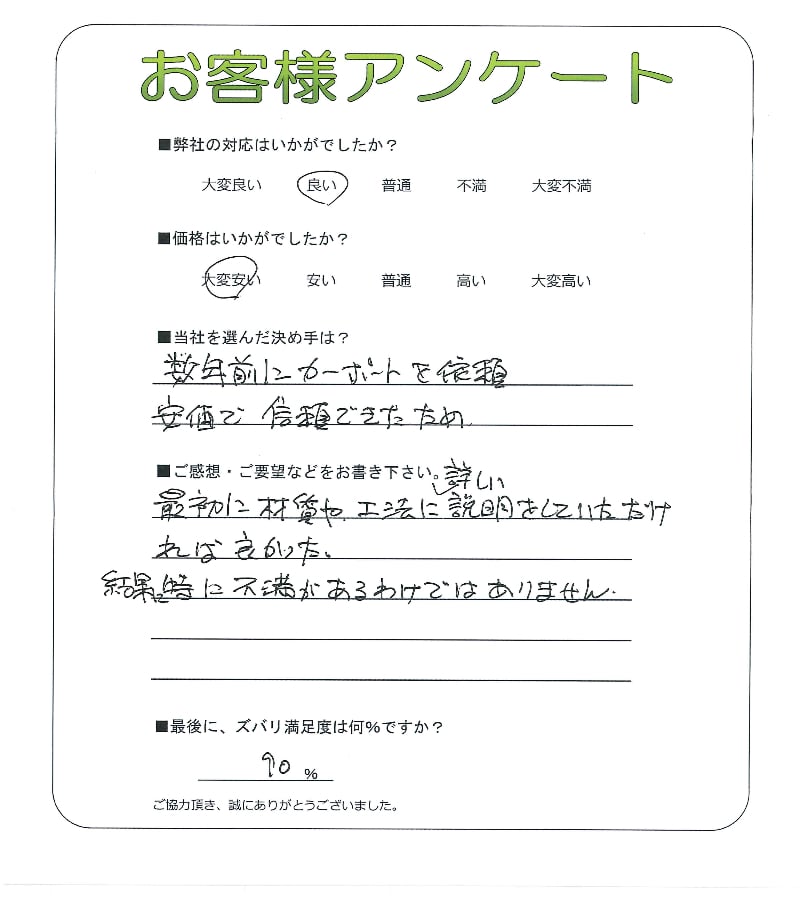 お客様アンケート
■弊社の対応はいかがでしたか？
大変良い 良い 普通 不満 大変不満
■価格はいかがでしたか？
大変安い 安い 普通 高い 大変高い
■当社を選んだ決め手は？
数年前にカーポートを依頼
安価で信頼できたため
■ご感想・ご要望などをお書き下さい。
詳しい
最初に材質や、工法に説明をしていただけ
れば良かった。
結果に時に不満があるわけではありません.
■最後に、ズバリ満足度は何%ですか？
90 %
ご協力頂き、誠にありがとうございました。